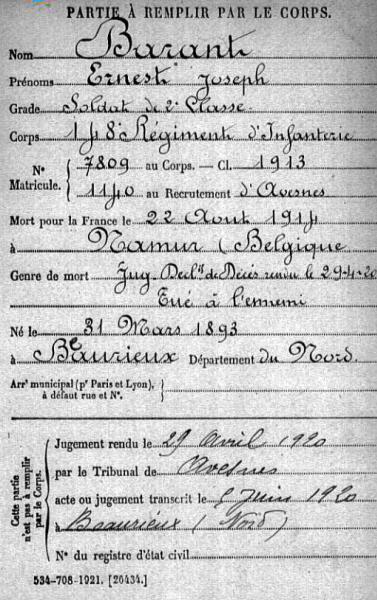 PARTIE À REMPLIR PAR LE CORPS.
Nom Barant
Prénoms Ernest Joseph
Grade Soldat de 2e Classe
Corps 148e Régiment d'Infanterie
N° Matricule. 7809 au Corps. — Cl. 1913
1140 au Recrutement d'Avesnes
Mort pour la France le 22 Aout 1914
à Namur (Belgique
Genre de mort Jug. Décl.if de Décès rendu le 29-4-20
Tué à l'ennemi
Né le 31 Mars 1893
à Beaurieux Département du Nord.
Arrt municipal (pr Paris et Lyon),
à défaut rue et N°.
Cette partie n'est pas à remplir par le Corps.
Jugement rendu le 29 Avril 1920
par le Tribunal de Avesnes
acte ou jugement transcrit le 5 Juin 1920
à Beaurieux (Nord)
N° du registre d'état civil
534-708-1921. [26434.]